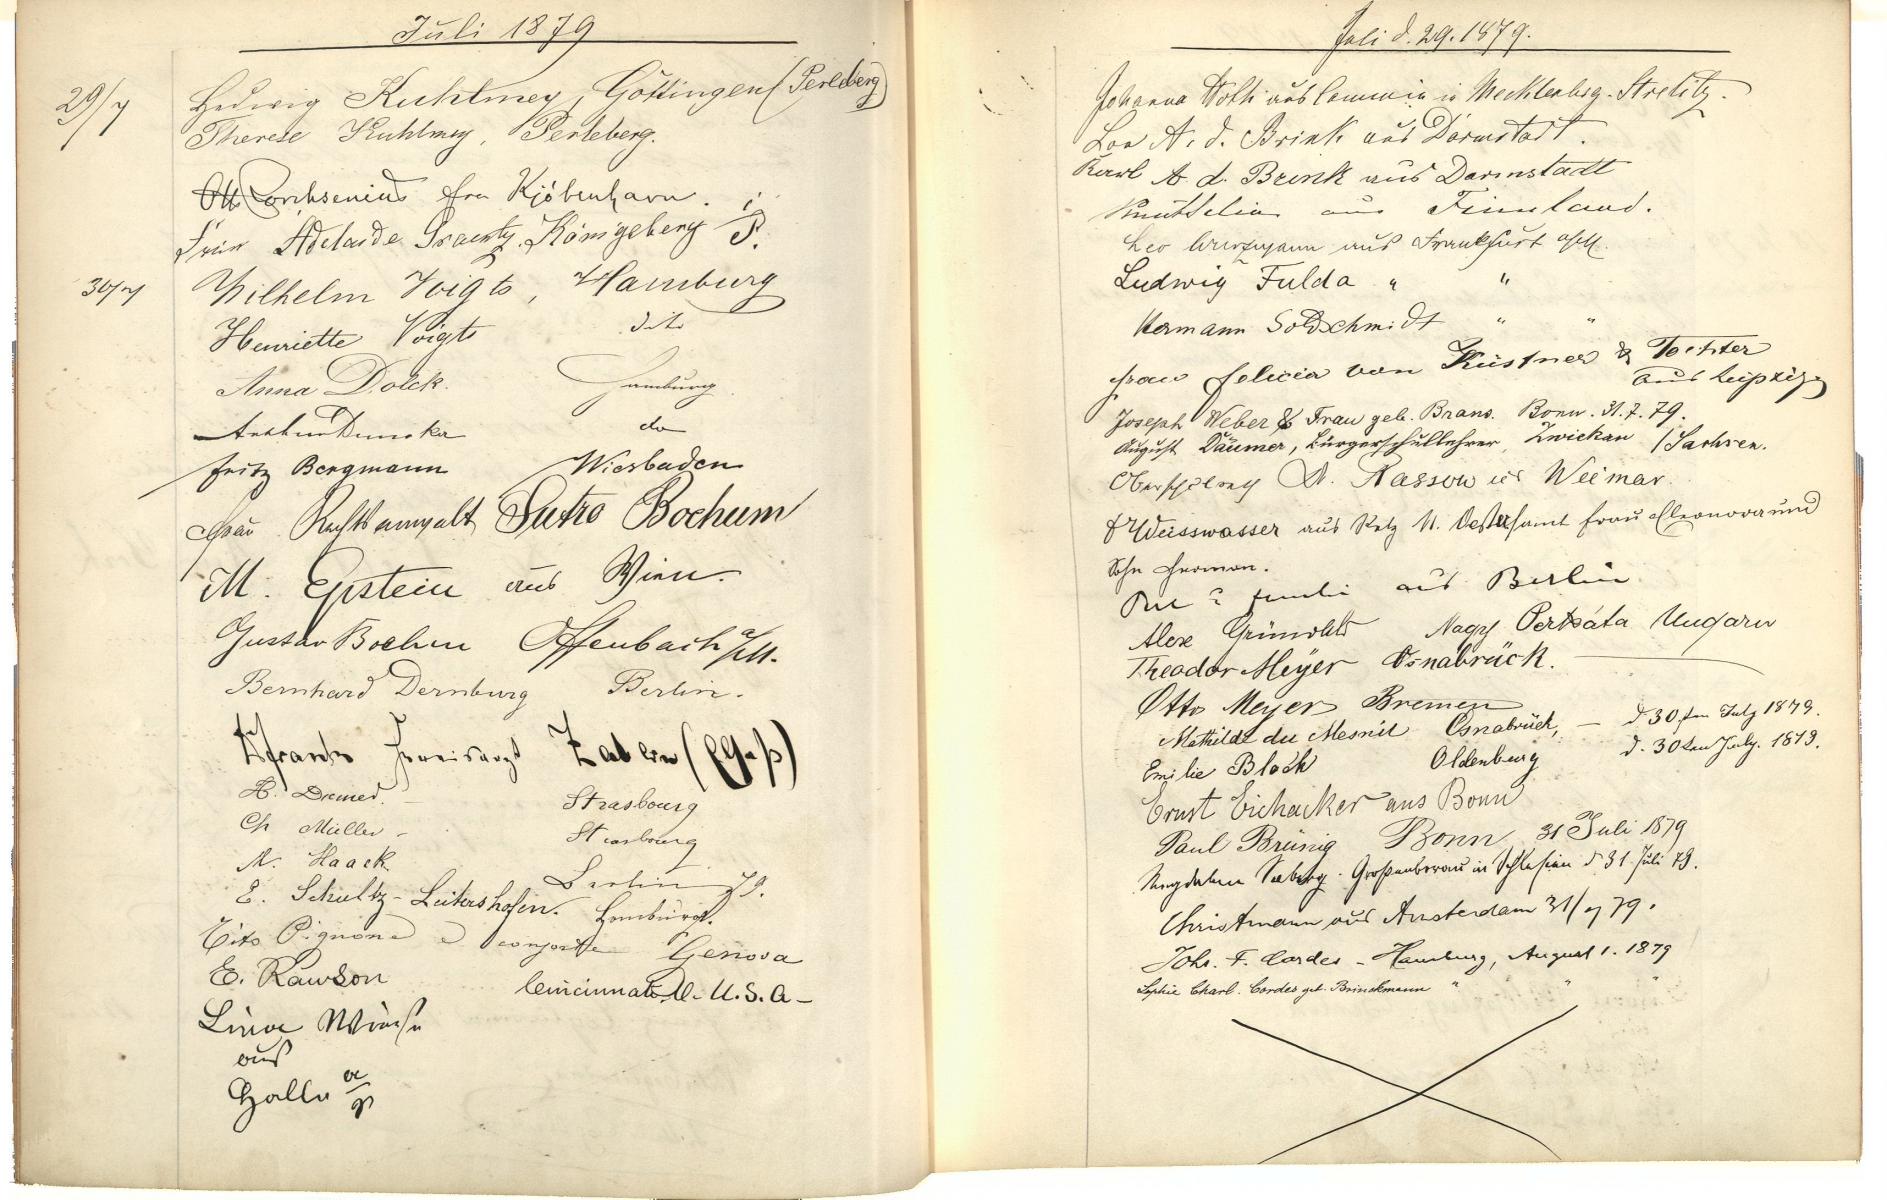 Juli 1879
29/7
Hedwig Kuhlmey, Göttingen (Perleberg)
Therese Kuhlmey, Perleberg.
fra Kjöbenhavn.
Adelaide Königsberg i. P.
30/7
Wilhelm Voigts, Hamburg
Henriette Voigts dito
Anna Dolck. Hamburg
Arthur Duncker do
Fritz Bergmann Wiesbaden
Frau Rechtsanwalt Sutro Bochum
M. Epstein aus Wien.
Gustav Boehm Offenbach a/M.
Bernhard Dernburg Berlin.
Zabern (Elsaß)
H. Strasbourg
Ch Müller - Strasbourg
A. Haack Berlin 79.
E. Schultz-Leitershofen. Homburg.
Tito Pignone e consorte Genova
E. Rawson Cincinnati O. U.S.A-
Lina
aus
Halle a/S
Juli d. 29. 1879.
Johanna aus Cammin in Mecklenburg-Strelitz.
A. d. Brink aus Darmstadt.
Karl A. d. Brink aus Darmstadt
aus Finnland.
Leo aus Frankfurt a/M.
Ludwig Fulda " "
Hermann Goldschmidt " "
Frau Felicia von Küstner & Tochter
aus Leipzig
Joseph Weber & Frau geb. Brans. Bonn. 31.7.79.
August Däumer, Bürgerschullehrer, Zwickau / Sachsen.
Oberschulrath Dr. Rassow aus Weimar.
Weisswasser aus Retz N. Oester samt Frau Eleonora und
Sohn Herman.
aus Berlin
Alex Grünwald Nagy Perkáta Ungarn
Theodor Meyer Osnabrück.
Otto Meyer Bremen
Mathilde du Mesnil Osnabrück, - d 30ten July 1879.
Emilie Bloch Oldenburg d. 30ten July. 1879.
Ernst Eichacker aus Bonn
Paul Brünig Bonn 31 Juli 1879
Magdalena in Schlesien d 31. Juli 79.
Christmann aus Amsterdam 31/7 79.
Johs. F. Cordes - Hamburg, August 1. 1879
Sophie Charl. Cordes geb. Brinckmann " " "